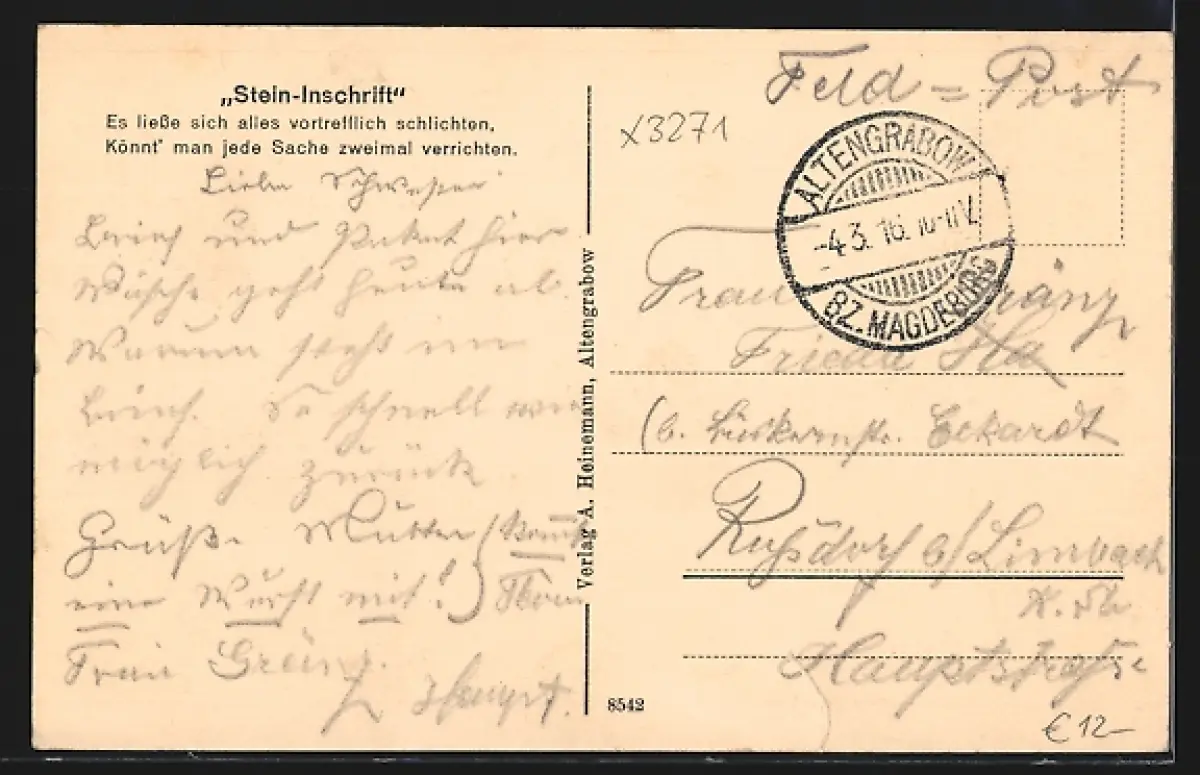 „Stein-Inschrift“
Es ließe sich alles vortrefflich schlichten,
Könnt' man jede Sache zweimal verrichten.
Liebe Schwester
Brief und Paket hier
Wäsche geht heute ab.
Warum steht im
Brief. So schnell wie
möglich zurück
Grüße Mutter
eine Wurst mit!
Frau Gränz.
Verlag A. Heinemann, Altengrabow
Feld=Post
x3271
ALTENGRABOW
-4.3.16. 10-11V.
BZ. MAGDEBURG
Frau Gränz
Frieda
(b. Eckardt
Rußdorf b/Limbach
Hauptstraße
8542
€12-